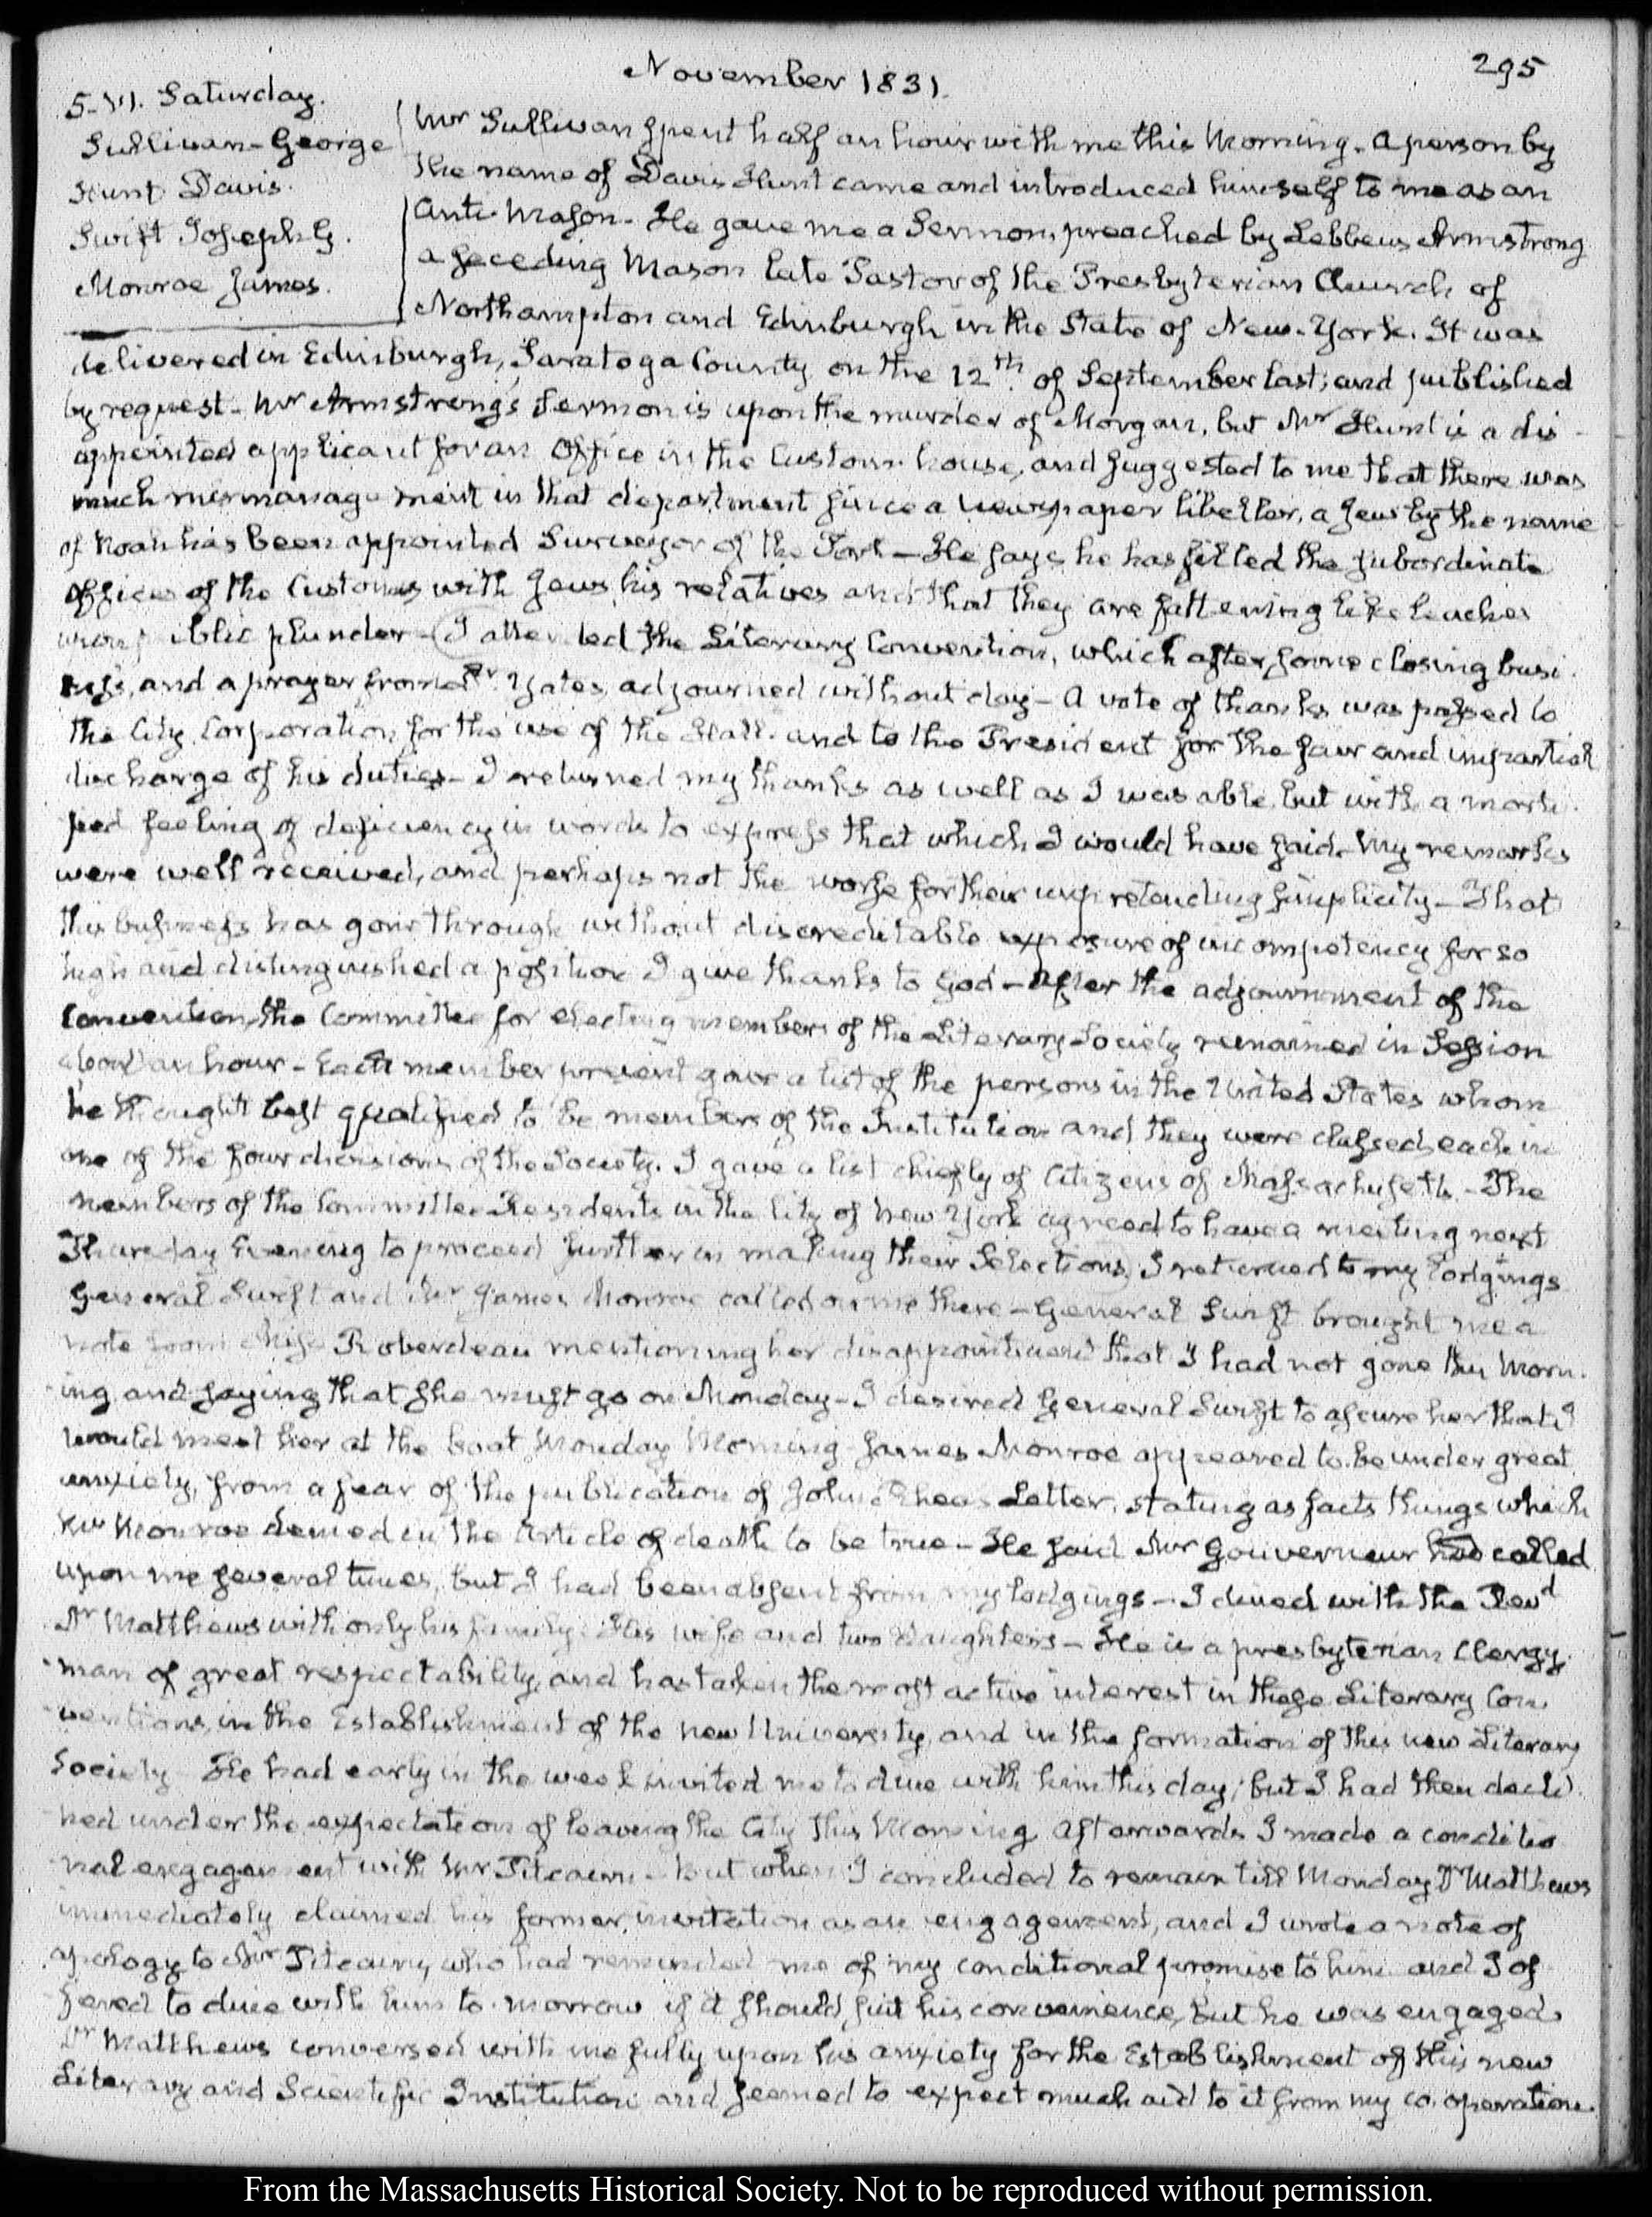 November 1831.
295
5. VI. Saturday.
Sullivan - George
Hunt Davis.
Swift Joseph G.
Monroe James.
Mr Sullivan spent half an hour with me this Morning. A person by
the name of Davis Hunt came and introduced himself to me as an
Anti-Mason - He gave me a Sermon, preached by Lebbeus Armstrong
a seceding Mason late Pastor of the Presbyterian Church of
Northampton and Edinburgh in the State of New-York. It was
delivered in Edinburgh, Saratoga County on the 12th. of September last; and published
by request - Mr Armstrong's Sermon is upon the murder of Morgan, but Mr Hunt is a dis-
appointed applicant for an Office in the Custom-house, and suggested to me that there was
much mismanagement in that department since a newspaper libeller, a Jew by the name
of Noah has been appointed Surveyor of the Port - He says he has filled the subordinate
Offices of the Customs with Jews, his relatives and that they are fattening like leaches
upon public plunder - I attended the Literary Convention, which after some closing busi-
ness, and a prayer from Dr. Yates, adjourned without day - A vote of thanks was passed to
the City Corporation, for the use of the Hall. and to the President for the fair and impartial
discharge of his duties - I returned my thanks as well as I was able, but with a morti-
fied feeling of deficiency in words to express that which I would have said. My remarks
were well received, and perhaps not the worse for their unpretending simplicity - That
this business has gone through without discreditable exposure of incompetency for so
high and distinguished a position I give thanks to God - After the adjournment of the
Convention, the Committee for electing members of the Literary Society remained in Session
about an hour - Each member present gave a list of the persons in the United States whom
he thought best qualified to be members of the Institution and they were classed each in
one of the four divisions of the Society. I gave a list chiefly of Citizens of Massachusetts - The
members of the Committee Residents in the City of New York agreed to have a meeting next
Thursday Evening to proceed further in making their Selections. I returned to my lodgings
General Swift and Mr James Monroe called on me there - General Swift brought me a
note from Miss Roberdeau mentioning her disappointment that I had not gone this Morn-
ing and saying that she must go on Monday - I desired General Swift to assure her that I
would meet her at the boat Monday Morning - James Monroe appeared to be under great
anxiety, from a fear of the publication of John Rhea's Letter, stating as facts things which
Mr Monroe denied in the Article of death to be true - He said Mr Gouverneur had called
upon me several times, but I had been absent from my lodgings - I dined with the Revd
Dr Matthews with only his family. His wife and two Daughters - He is a presbyterian Clergy-
man of great respectability, and has taken the most active interest in these Literary Con-
ventions, in the Establishment of the new University, and in the formation of this new Literary
Society He had early in the week invited me to dine with him this day; but I had then decli-
ned under the expectation of leaving the City this Morning. Afterwards I made a conditio-
nal engagement with Mr Pitcairn - but when I concluded to remain till Monday Dr Matthews
immediately claimed his former invitation as an engagement, and I wrote a note of
apology to Mr Pitcairn, who had reminded me of my conditional promise to him and I of-
fered to dine with him to-morrow if it should suit his convenience, but he was engaged
Dr Matthews conversed with me fully upon his anxiety for the Establishment of this new
Literary and Scientific Institution and seemed to expect much aid to it from my co-operation.
From the Massachusetts Historical Society. Not to be reproduced without permission.